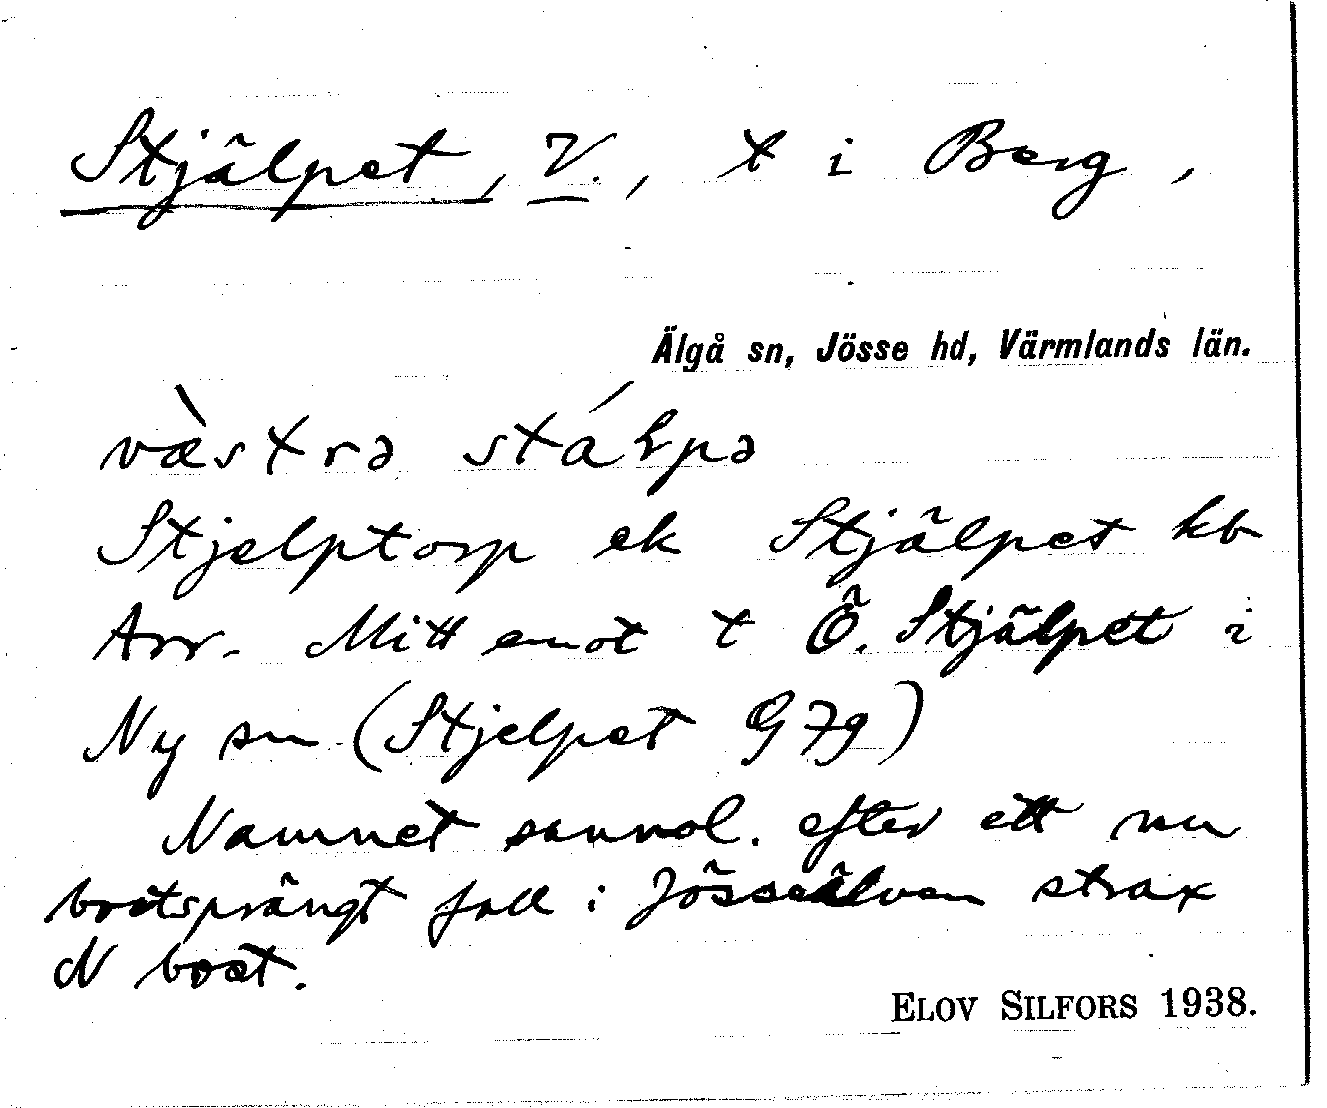 Stjälpet, V., t i Berg,
Älgå sn, Jösse hd, Värmlands län.
væ̀strə stáɫpə
Stjelptorp ek Stjälpet kb
Arr. Mitt emot t Ö. Stjälpet i
Ny sn (Stjelpet G 7g)
Namnet sannol. efter ett nu
bortsprängt fall i Jösseälven strax
N bort.
ELOV SILFORS 1938.